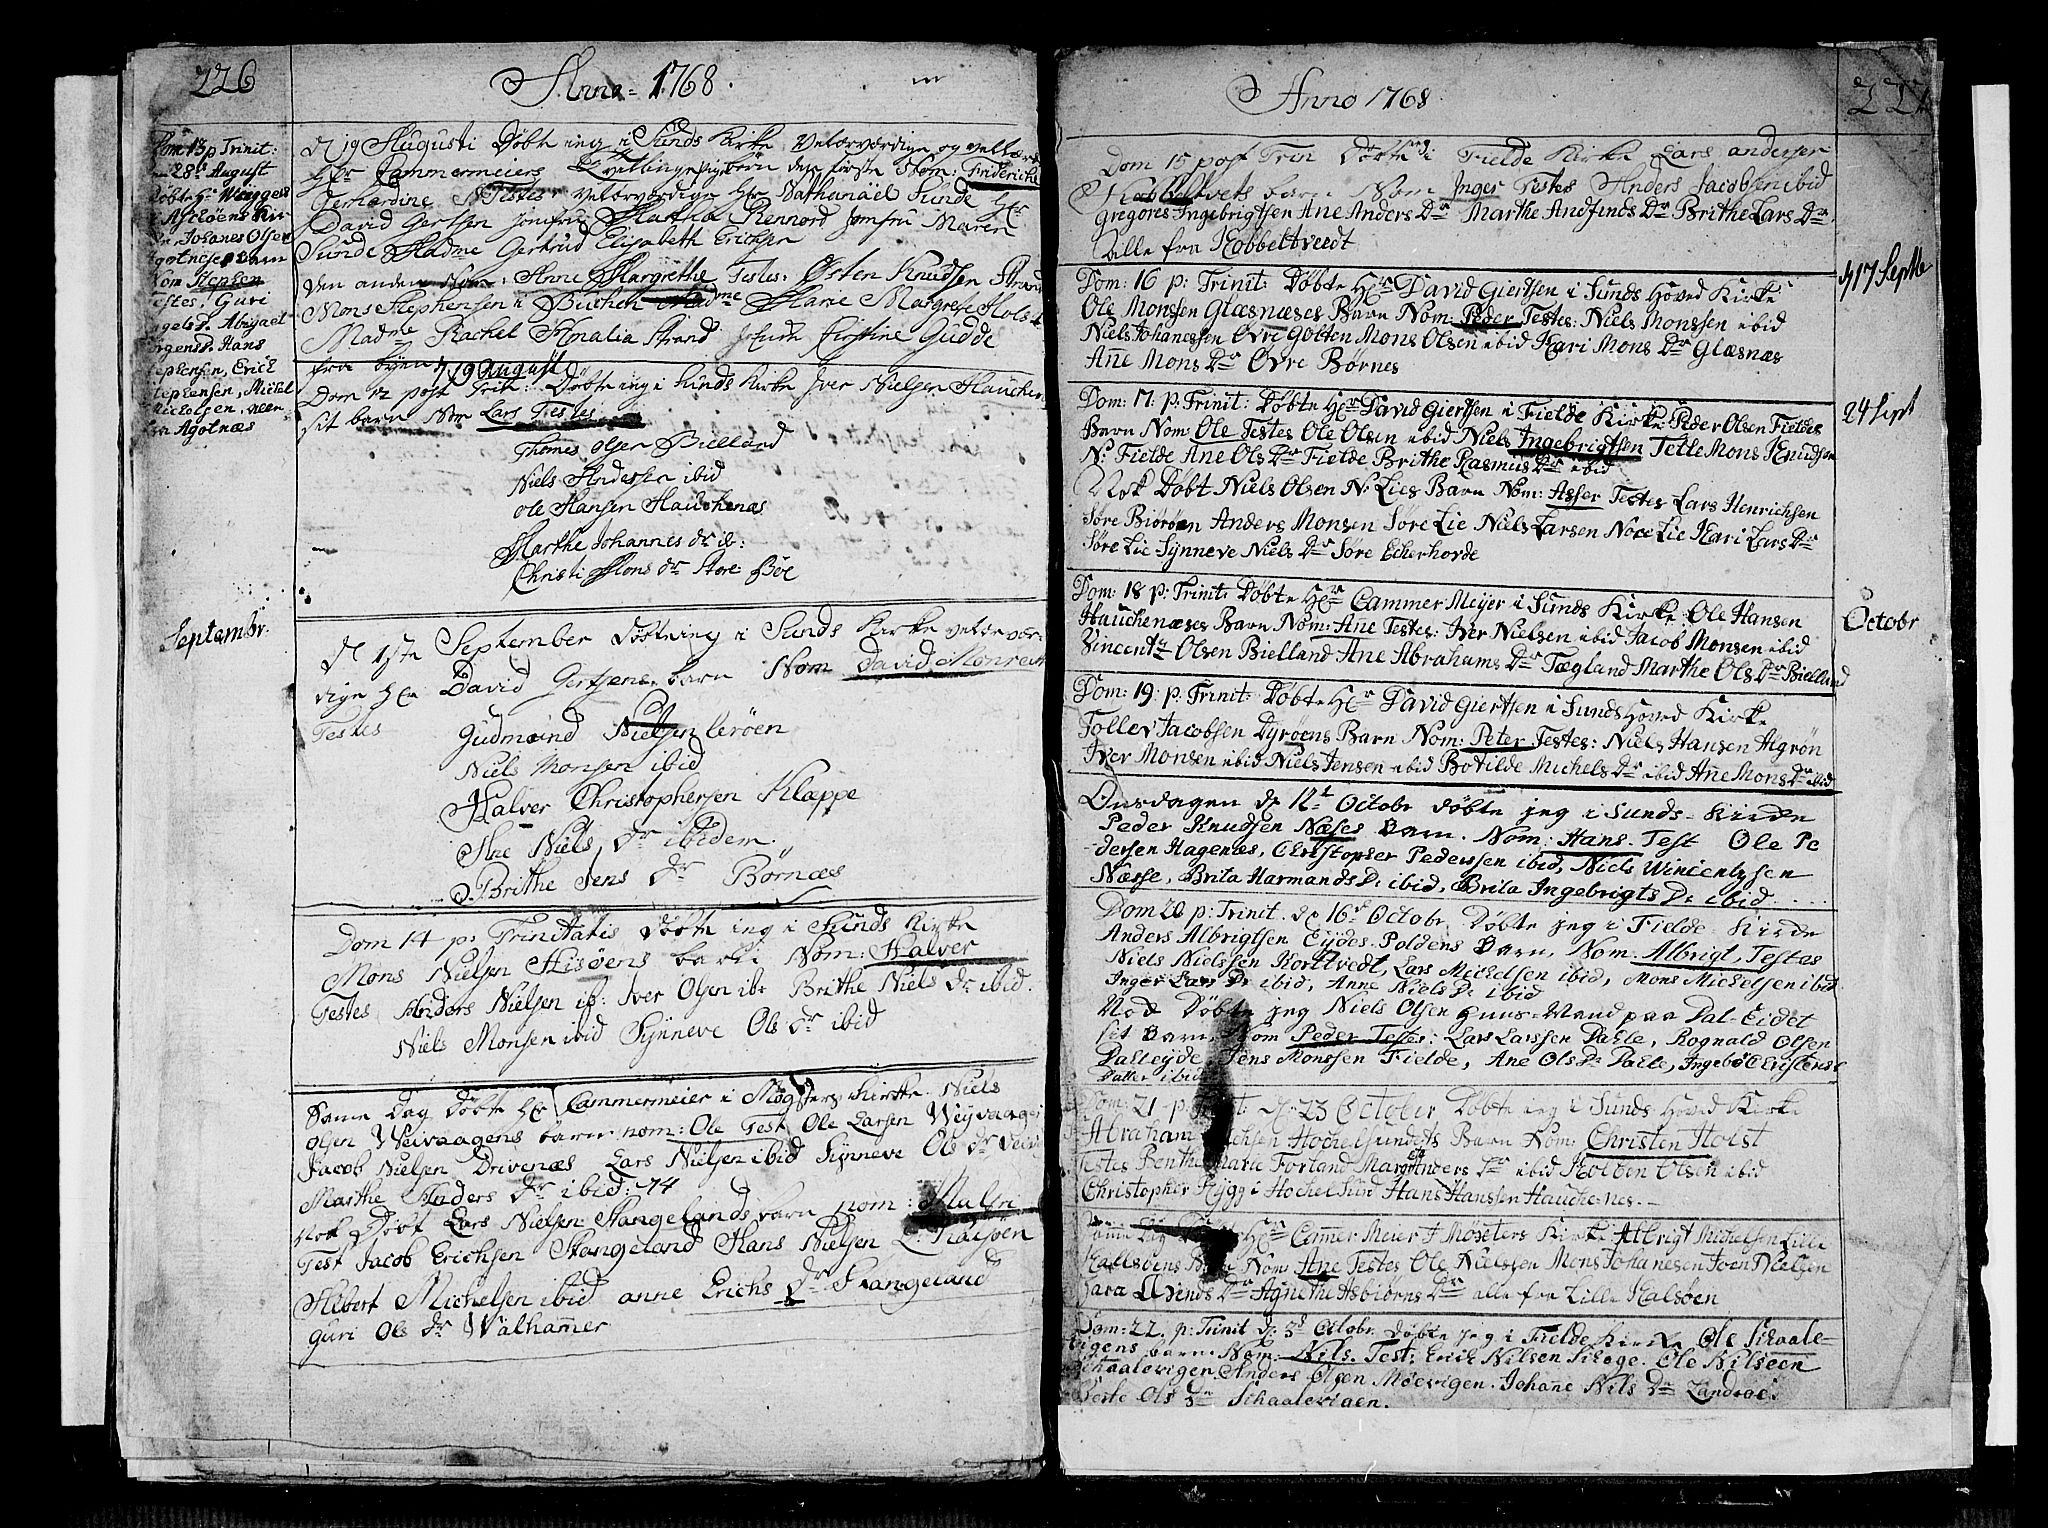 226
Anno 1768.
Dom 13 p Trinit:
28de August
døbte Hr Weygel
i Agtøens Kir
Johanes Olsen
Agotneses Barn
Nom Stephen
Testes: Guri
Engels d. Abigael
Jørgens d. Hans
Stephensen, Erich
Stephensen, Michel
Nicholsen, alle
fra Agotnæs
Septembr.
d 19 Augusti Døbte ieg i Sunds Kirke Velærværdige og vellærde
Hr Cammermeiers tvillinge pigebørn den første Nom: Friderich
Gerhardine Testes velærværdige Hr Nathanäel Sunde Hr
David Gertsen Jomfru Maria Rennord Jomfru Maren
Sunde Madme Gertrud Elisabeth Erichsen
den anden Nom: Anne Margrethe Testes: Østen Knudsen Strand
Mons Stephensen i Buchen Madme Marie Margrete Holst
Madme Rachel Amalia Strand Jomfru Cirstine Gudde
fra byen
d 19 August
Dom 12 post Trin: Døbte ieg i Sunds Kirke Iver Nielsen Hauchen
sit barn Nom Lars Testes
Thomes Olsen Bielland
Niels Andersen ibid
Ole Hansen Hauchenæs
Marthe Johannes dr ib:
Christi Mons dr Store Bøe
d 1ste September Døbte ieg i Sunds Kirke velærvær
dige Hr David Gertsens barn Nom David Monrad
Testes Gudmund Nielsen Lerøen
Niels Monsen ibid
Halver Christophersen Klæppe
Ane Niels dr ibidem
Brithe Jens dr Børnæs
Dom 14 p: Trinitatis døbte ieg i Sunds Kirke
Mons Nielsen Hisøens barn Nom: Halver
Testes Anders Nielsen ib: Iver Olsen ib: Brithe Niels dr ibid.
Niels Monsen ibid Synneve Ols dr ibid
Same Dag døbte Hr Cammermeier i Møgsters Kirke Niels
Olsen Weivaagens barn nom: Ole Test Ole Larsen Weyvaagen
Jacob Nielsen Drivenæs Lars Nielsen ibid Synneve Ols dr Veiv
Marthe Anders dr ibid: 74
Nok Døbt Lars Nielsen Stangelands barn nom: Malen
Test Jacob Erichsen Stangeland Hans Nielsen L: Kalsøen
Albert Michelsen ibid anne Erichs dr Stangeland
Guri Ols dr Walhamer
Anno 1768.
227
Dom 15 post Trin Døbte ieg i Fielde Kirke Lars andersen
Kobbeltvets barn Nom Inger Testes Anders Jacobsen ibid
Gregores Ingebrigtsen Ane Anders Dr Marthe Andfinds Dr Brithe Lars Dr
alle fra Kobbeltvedt
d 17 Septbr
Dom: 16 p: Trinit: Døbte Hr David Giertsen i Sunds Hoved Kirke
Ole Monsen Glæsnæses Barn Nom: Peder Testes: Niels Monssen ibid
Niels Johanessen Øvre Golten Mons Olsen ibid Kari Mons Dr Glæsnæs
Ane Mons Dr Øvre Børnes
24 Sept
Dom: 17. p: Trinit: Døbte Hr David Giertsen i Fielde Kirke Peder Olsen Fieldes
Barn Nom: Ole Testes Ole Olsen ibid Niels Ingebrigtsen Telle Mons Knudsen
N: Fielde Ane Ols Dr Fielde Brithe Rasmus Dr ibid
Nok Døbt Niels Olsen N: Lies Barn Nom: Asser Testes Lars Henrichsen
Søre Biørøen Anders Monsen Søre Lie Niels Larsen Nore Lie Kari Lars Dr
Søre Lie Synneve Niels Dr Søre Eckerhovde
Octobr
Dom: 18 p: Trinit: Døbte Hr Cammer Meyer i Sunds Kirke Ole Hansen
Hauchenæses Barn Nom: Ane Testes: Iver Nielsen ibid Jacob Monsen ibid
Vincents Olsen Bielland Ane Abrahams Dr Tægland Marthe Ols Dr Bielland
Dom: 19. p: Trinit: Døbte Hr David Giertsen i Sunds Hoved Kirke
Tollev Jacobsen Dyrøens Barn Nom: Peter Testes: Niels Hansen Algrøn
Iver Monsen ibid Niels Jensen ibid Botilde Michels Dr ibid Ane Mons Dr ibid
Onsdagen d 12t Octobr døbte jeg i Sunds-Kirke
Peder Knudsen Næses Barn. Nom: Hans. Test Ole Pe
dersen Hagenæs, Christopher Pederssen ibid, Niels Wincentzsen
Næsse, Brita Harmands Dr ibid, Brita Ingebrigts Dr ibid
Dom 20 p: Trinit. d 16t Octobr Døbte jeg i Fielde Kirke
Anders Albrigtsen Eijdes-Poldens Barn, Nom: Albrigt, Testes
Niels Nielssen Korttvedt, Lars Michelsen ibid, Mons Michelsen ibid
Inger Lars Dr ibid, Anne Niels Dr ibid
Nod Døbte jeg Niels Olsen Huus-Mand paa Dal-Eidet
sit Barn Nom Peder Testes: Lars Larssen Dahle, Rognald Olsen
Dalleyde Jens Monssen Fielde, Ane Ols Dr Dahle, Ingebor Christens
Daller ibid
Dom: 21-p: Trinit: d: 23 October Døbte ieg i Sunds Hoved Kirke
Abraham Hochelsundets Barn Nom: Christen Holst
Testes Benthe Marie Forland Margr Anders Dr ibid Kolben Olsen ibid
Christopher Rygg i Hochelsund Hans Hanssen Hauche-nes.
Same Dag Døbte Hr Camer Meier i Møxsters Kirke Albrigt Michelsen Lille
Kallsøens Barn Nom: Ane Testes Ole Nielssen Mons Johanesen Joen Nielsen
Sara Øvinds Dr Agnethe Asbiørns Dr alle fra Lille Kalsøen
Dom: 22. p: Trinit d: Octobr døbte jeg i Fielde Kirke Ole Skaale-
vigens Barn Nom: Nils. Test: Erich Nilsen Skoge. Ole Nilseen
Schaalevigen. Anders Olsen Møevigen. Johane Nils Dr Landroe.
Ols Dr Schaalevigen.